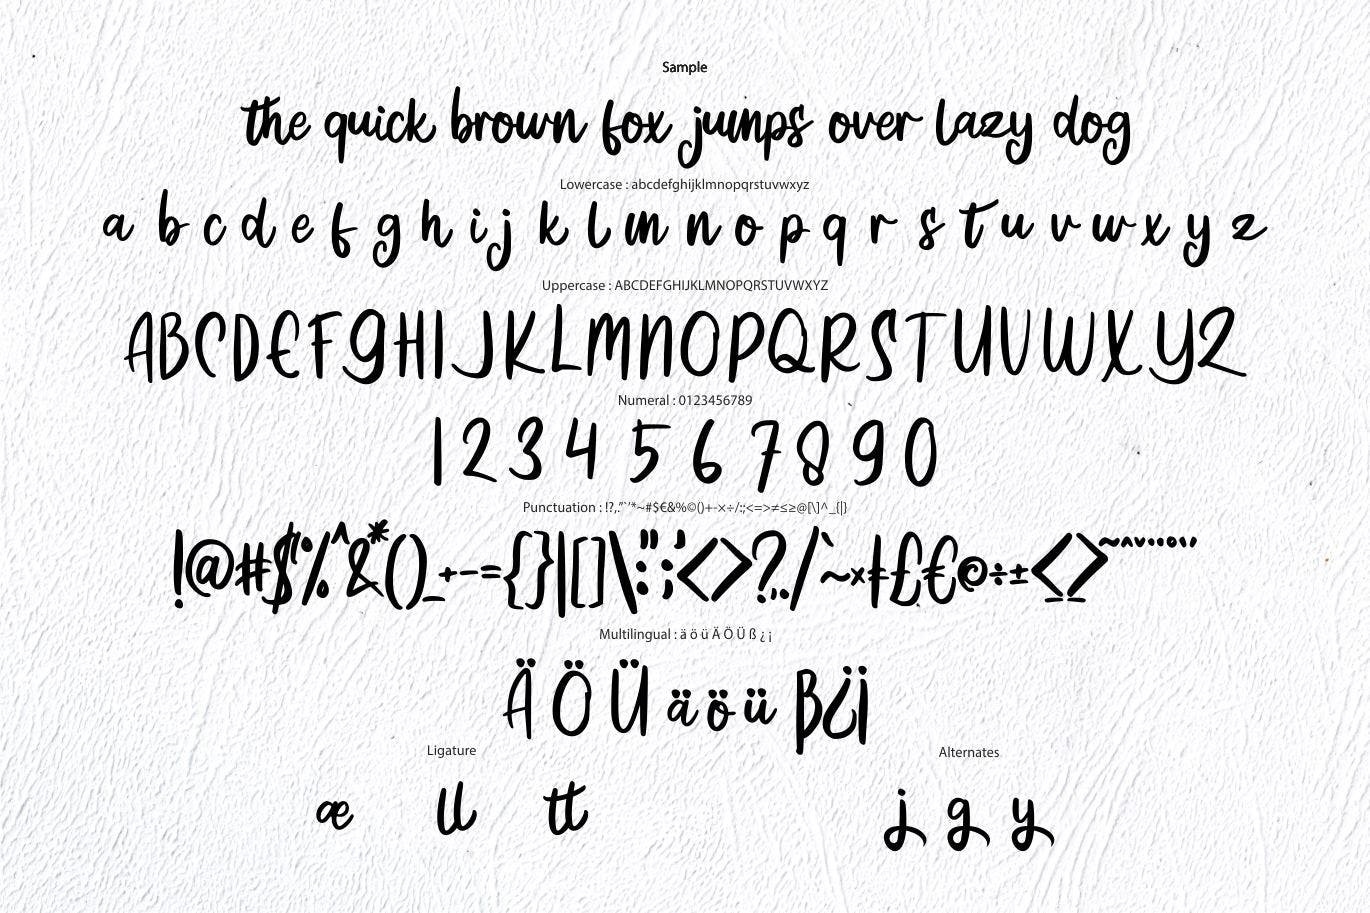 Sample
the quick brown fox jumps over lazy dog
Lowercase : abcdefghijklmnopqrstuvwxyz
a b c d e f g h i j k l m n o p q r s t u v w x y z
Uppercase : ABCDEFGHIJKLMNOPQRSTUVWXYZ
ABCDEFGHIJKLMNOPQRSTUVWXYZ
Numeral : 0123456789
1 2 3 4 5 6 7 8 9 0
Punctuation : !?,."`'*~#$€&%©()+-×÷/:;<=>≠≤≥@[\]^_{|}
!@#$%^&*()_+-={}|[]\:";'<>?,./`~×ƚ£€©÷±≤≥~^ˇ
Multilingual : ä ö ü Ä Ö Ü ß ¿ ¡
Ä Ö Ü ä ö ü ß¿¡
Ligature
Alternates
æ ll tt
j g y